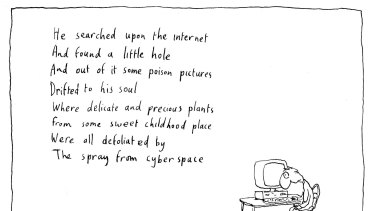 He searched upon the internet
And found a little hole
And out of it some poison pictures
Drifted to his soul
Where delicate and precious plants
From some sweet childhood place
Were all defoliated by
The spray from cyberspace